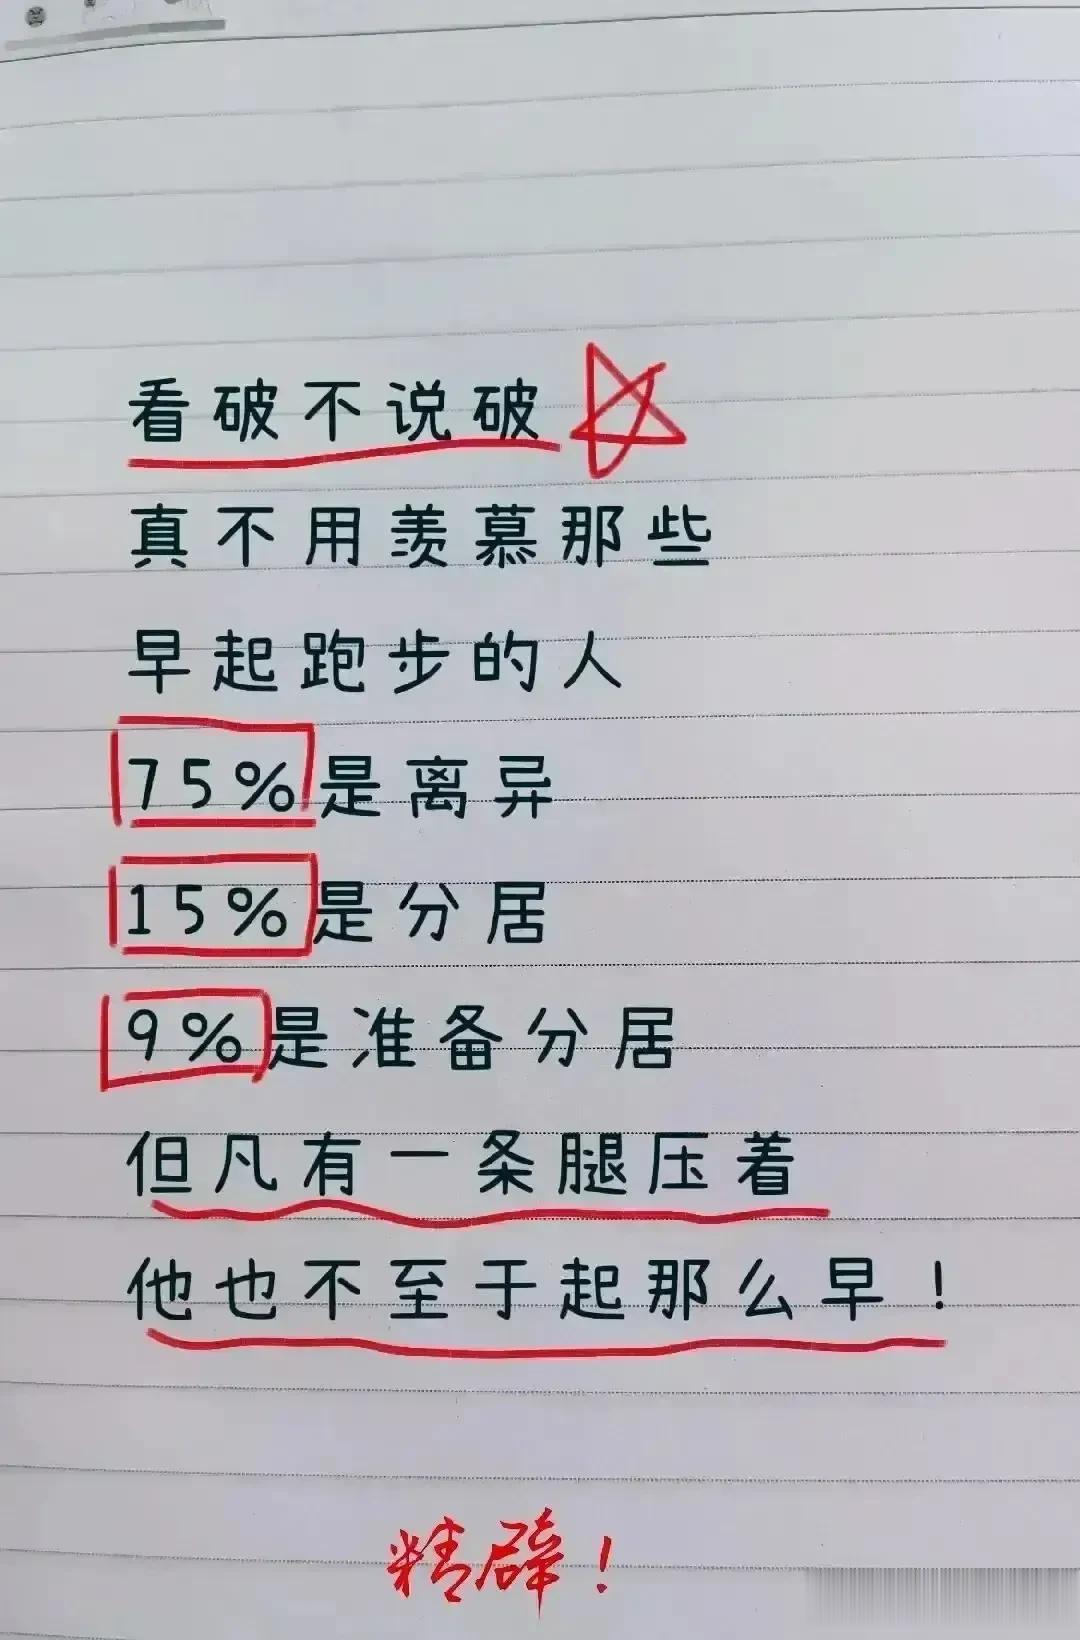 看破不说破
真不用羡慕那些
早起跑步的人
75%是离异
15%是分居
9%是准备分居
但凡有一条腿压着
他也不至于起那么早!
精辟!